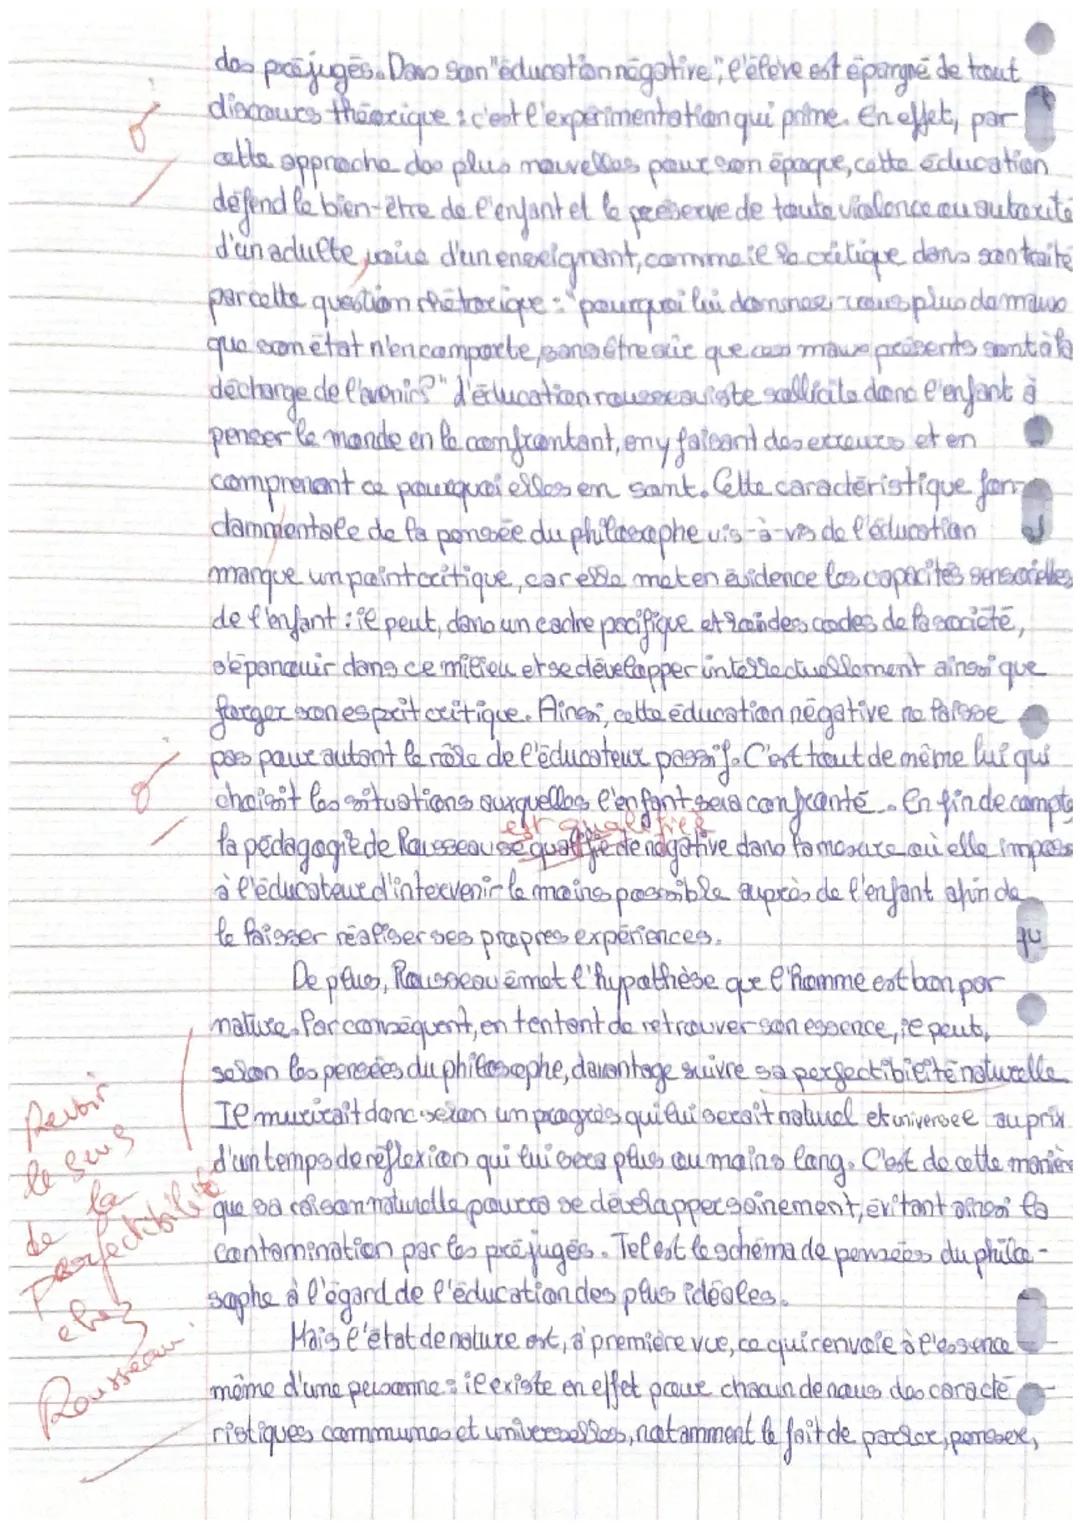 des préjugés. Dans son "éducation négative", l'élève est épargné de tout
discours théorique : c'est l'expérimentation qui prime. En effet, par
cette approche des plus nouvelles pour son époque, cette éducation
défend le bien-être de l'enfant et le préserve de toute violence ou autorité
d'un adulte, voire d'un enseignant, comme il la critique dans son traité
par cette question rhétorique : "pourquoi lui donnez-vous plus de maux
que son état n'en comporte, sans être sûr que ces maux présents sont à la
décharge de l'avenir?" L'éducation rousseauiste sollicite donc l'enfant à
penser le monde en le confrontant, en y faisant des erreurs et en
comprenant ce pourquoi elles en sont. Cette caractéristique fon-
dammentale de la pensée du philosophe vis-à-vis de l'éducation
marque un point critique, car elle met en évidence les capacités sensorielles
de l'enfant : il peut, dans un cadre pacifique et loin des codes de la société,
s'épanouir dans ce milieu et se développer intellectuellement ainsi que
forger son esprit critique. Ainsi, cette éducation négative ne laisse
pas pour autant le rôle de l'éducateur passif. C'est tout de même lui qui
choisit les situations auxquelles l'enfant sera confronté. En fin de compte
est qualifiée
la pédagogie de Rousseau se qualifie de négative dans la mesure où elle impose
à l'éducateur d'intervenir le moins possible auprès de l'enfant afin de
le laisser réaliser ses propres expériences.
De plus, Rousseau émet l'hypothèse que l'homme est bon par
nature. Par conséquent, en tentant de retrouver son essence, il peut,
selon les pensées du philosophe, davantage suivre sa perfectibilité naturelle.
Il murirait donc selon un progrès qui lui serait naturel et universel au prix
d'un temps de réflexion qui lui sera plus ou moins long. C'est de cette manière
que sa raison naturelle pourra se développer sainement, évitant ainsi la
contamination par les préjugés. Tel est le schéma de pensées du philo-
sophe à l'égard de l'éducation des plus idéales.
Revoir
le sens
de la
perfectibilité
chez
Rousseau.
Mais l'état de nature est, à première vue, ce qui renvoie à l'essence
même d'une personne : il existe en effet pour chacun de nous des caracté
ristiques communes et universelles, notamment le fait de parler, penser,